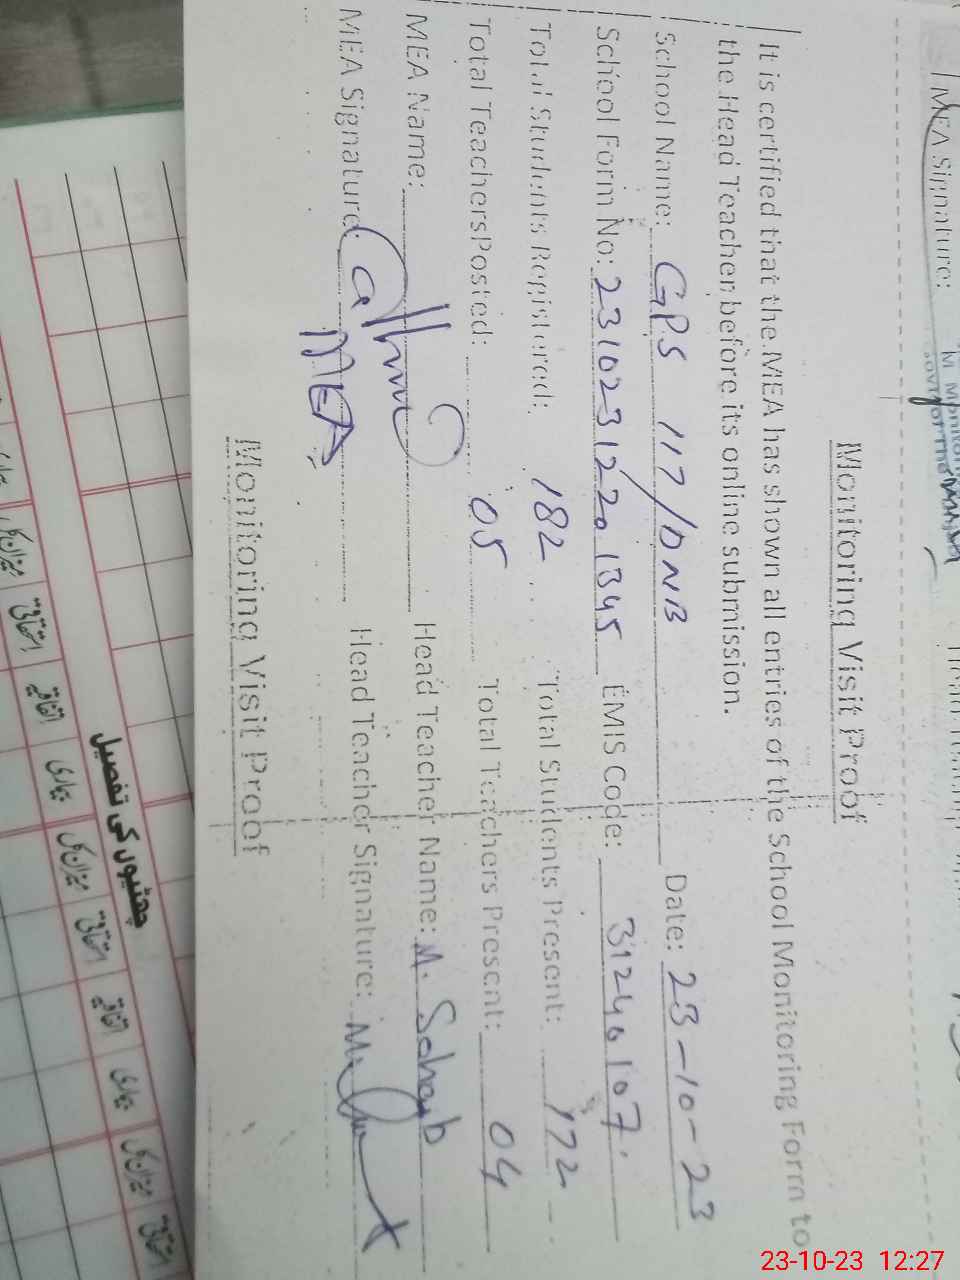 MEA Signature:
Monitoring Visit Proof
It is certified that the MEA has shown all entries of the School Monitoring Form to
the Head Teacher before its online submission.
School Name: GPS 117/DNB Date: 23-10-23
School Form No: 23102312201345 EMIS Code: 31240107.
Total Students Registered: 182 Total Students Present: 172
Total Teachers Posted: 05 Total Teachers Present: 04
MEA Name: Head Teacher Name: M. Sohaib
MEA Signature: MEA Head Teacher Signature:
Monitoring Visit Proof
چھٹیوں کی تفصیل
میزان کل استحقاقی اتفاقیہ بیماری میزان کل استحقاقی اتفاقیہ بیماری میزان کل استحقاقی
23-10-23 12:27